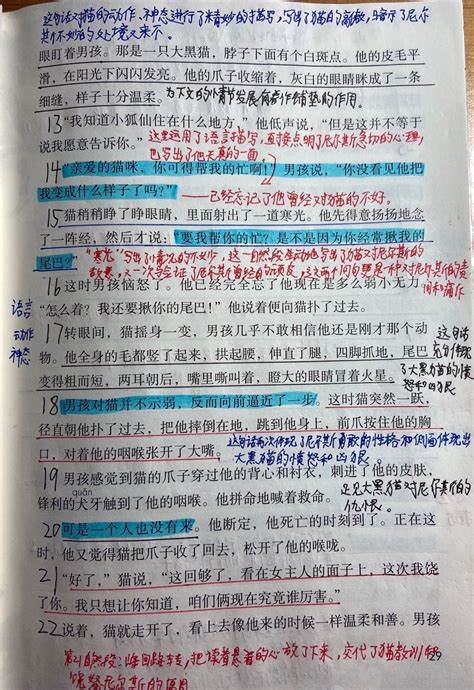 这句话对猫的动作、神态进行了精妙的描写,写出了猫的高傲,暗示了尼尔
其不妙的处境又来了.
眼盯着男孩。那是一只大黑猫,脖子下面有个白斑点。他的皮毛平
滑,在阳光下闪闪发亮。他的爪子收缩着,灰白的眼睛眯成了一条
细缝,样子十分温柔。为下文的情节发展有着作铺垫的作用.
13“我知道小狐仙住在什么地方,”他低声说,“但是这并不等于
说我愿意告诉你。”这里运用了语言描写,直接点明了尼尔斯急切的心理,
也写出了他天真的一面.
14“亲爱的猫咪,你可得帮我的忙啊!”男孩说,“你没看见他把
我变成什么样子了吗?”——已经忘记了他曾经对猫的不好.
15猫稍稍睁了睁眼睛,里面射出了一道寒光。他先得意扬扬地念
了一阵经,然后才说:“要我帮你的忙?是不是因为你经常揪我的
尾巴?”
16这时男孩恼怒了。他已经完全忘了他现在是多么弱小无力
语言
动作
神态
“怎么着?我还要揪你的尾巴!”他说着便向猫扑了过去。
17转眼间,猫摇身一变,男孩几乎不敢相信他还是刚才那个动
物。他全身的毛都竖了起来,拱起腰,伸直了腿,四脚抓地,尾巴
变得粗而短,两耳朝后,嘴里嘶叫着,瞪大的眼睛冒着火星。
这句话
充分体现
了大黑猫的愤
怒和凶狠
18男孩对猫并不示弱,反而向前逼近了一步。这时猫突然一跃,
径直朝他扑了过去,把他摔倒在地,跳到他身上,前爪按住他的胸
口,对着他的咽喉张开了大嘴。这句话再次体现了尼尔斯勇敢的性格和侧面体现出
大黑猫的愤怒和凶狠.
19男孩感觉到猫的爪子穿过他的背心和衬衣,刺进了他的皮肤,
quǎn
锋利的犬牙触到了他的咽喉。他拼命地喊着救命。
足见大黑猫对尼尔斯的
仇恨.
20可是一个人也没有来。他断定,他死亡的时刻到了。正在这
时,他又觉得猫把爪子收了回去,松开了他的喉咙。
21“好了,”猫说,“这回够了,看在女主人的面子上,这次我饶
了你。我只想让你知道,咱们俩现在究竟谁厉害。”
22说着,猫就走开了,看上去像他来的时候一样温柔和善。男孩
第21自然段:峰回路转,把读者悬着的心放了下来,交代了猫教训
尼尔斯的原因
29